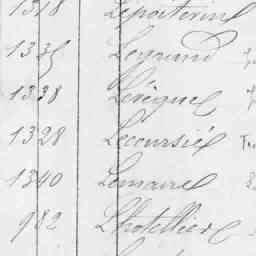 1318 Lepoiterin
1335 Legrand
1338 Levêque
1328 Lecoursié
1340 Lemaire
982 Lhotellier